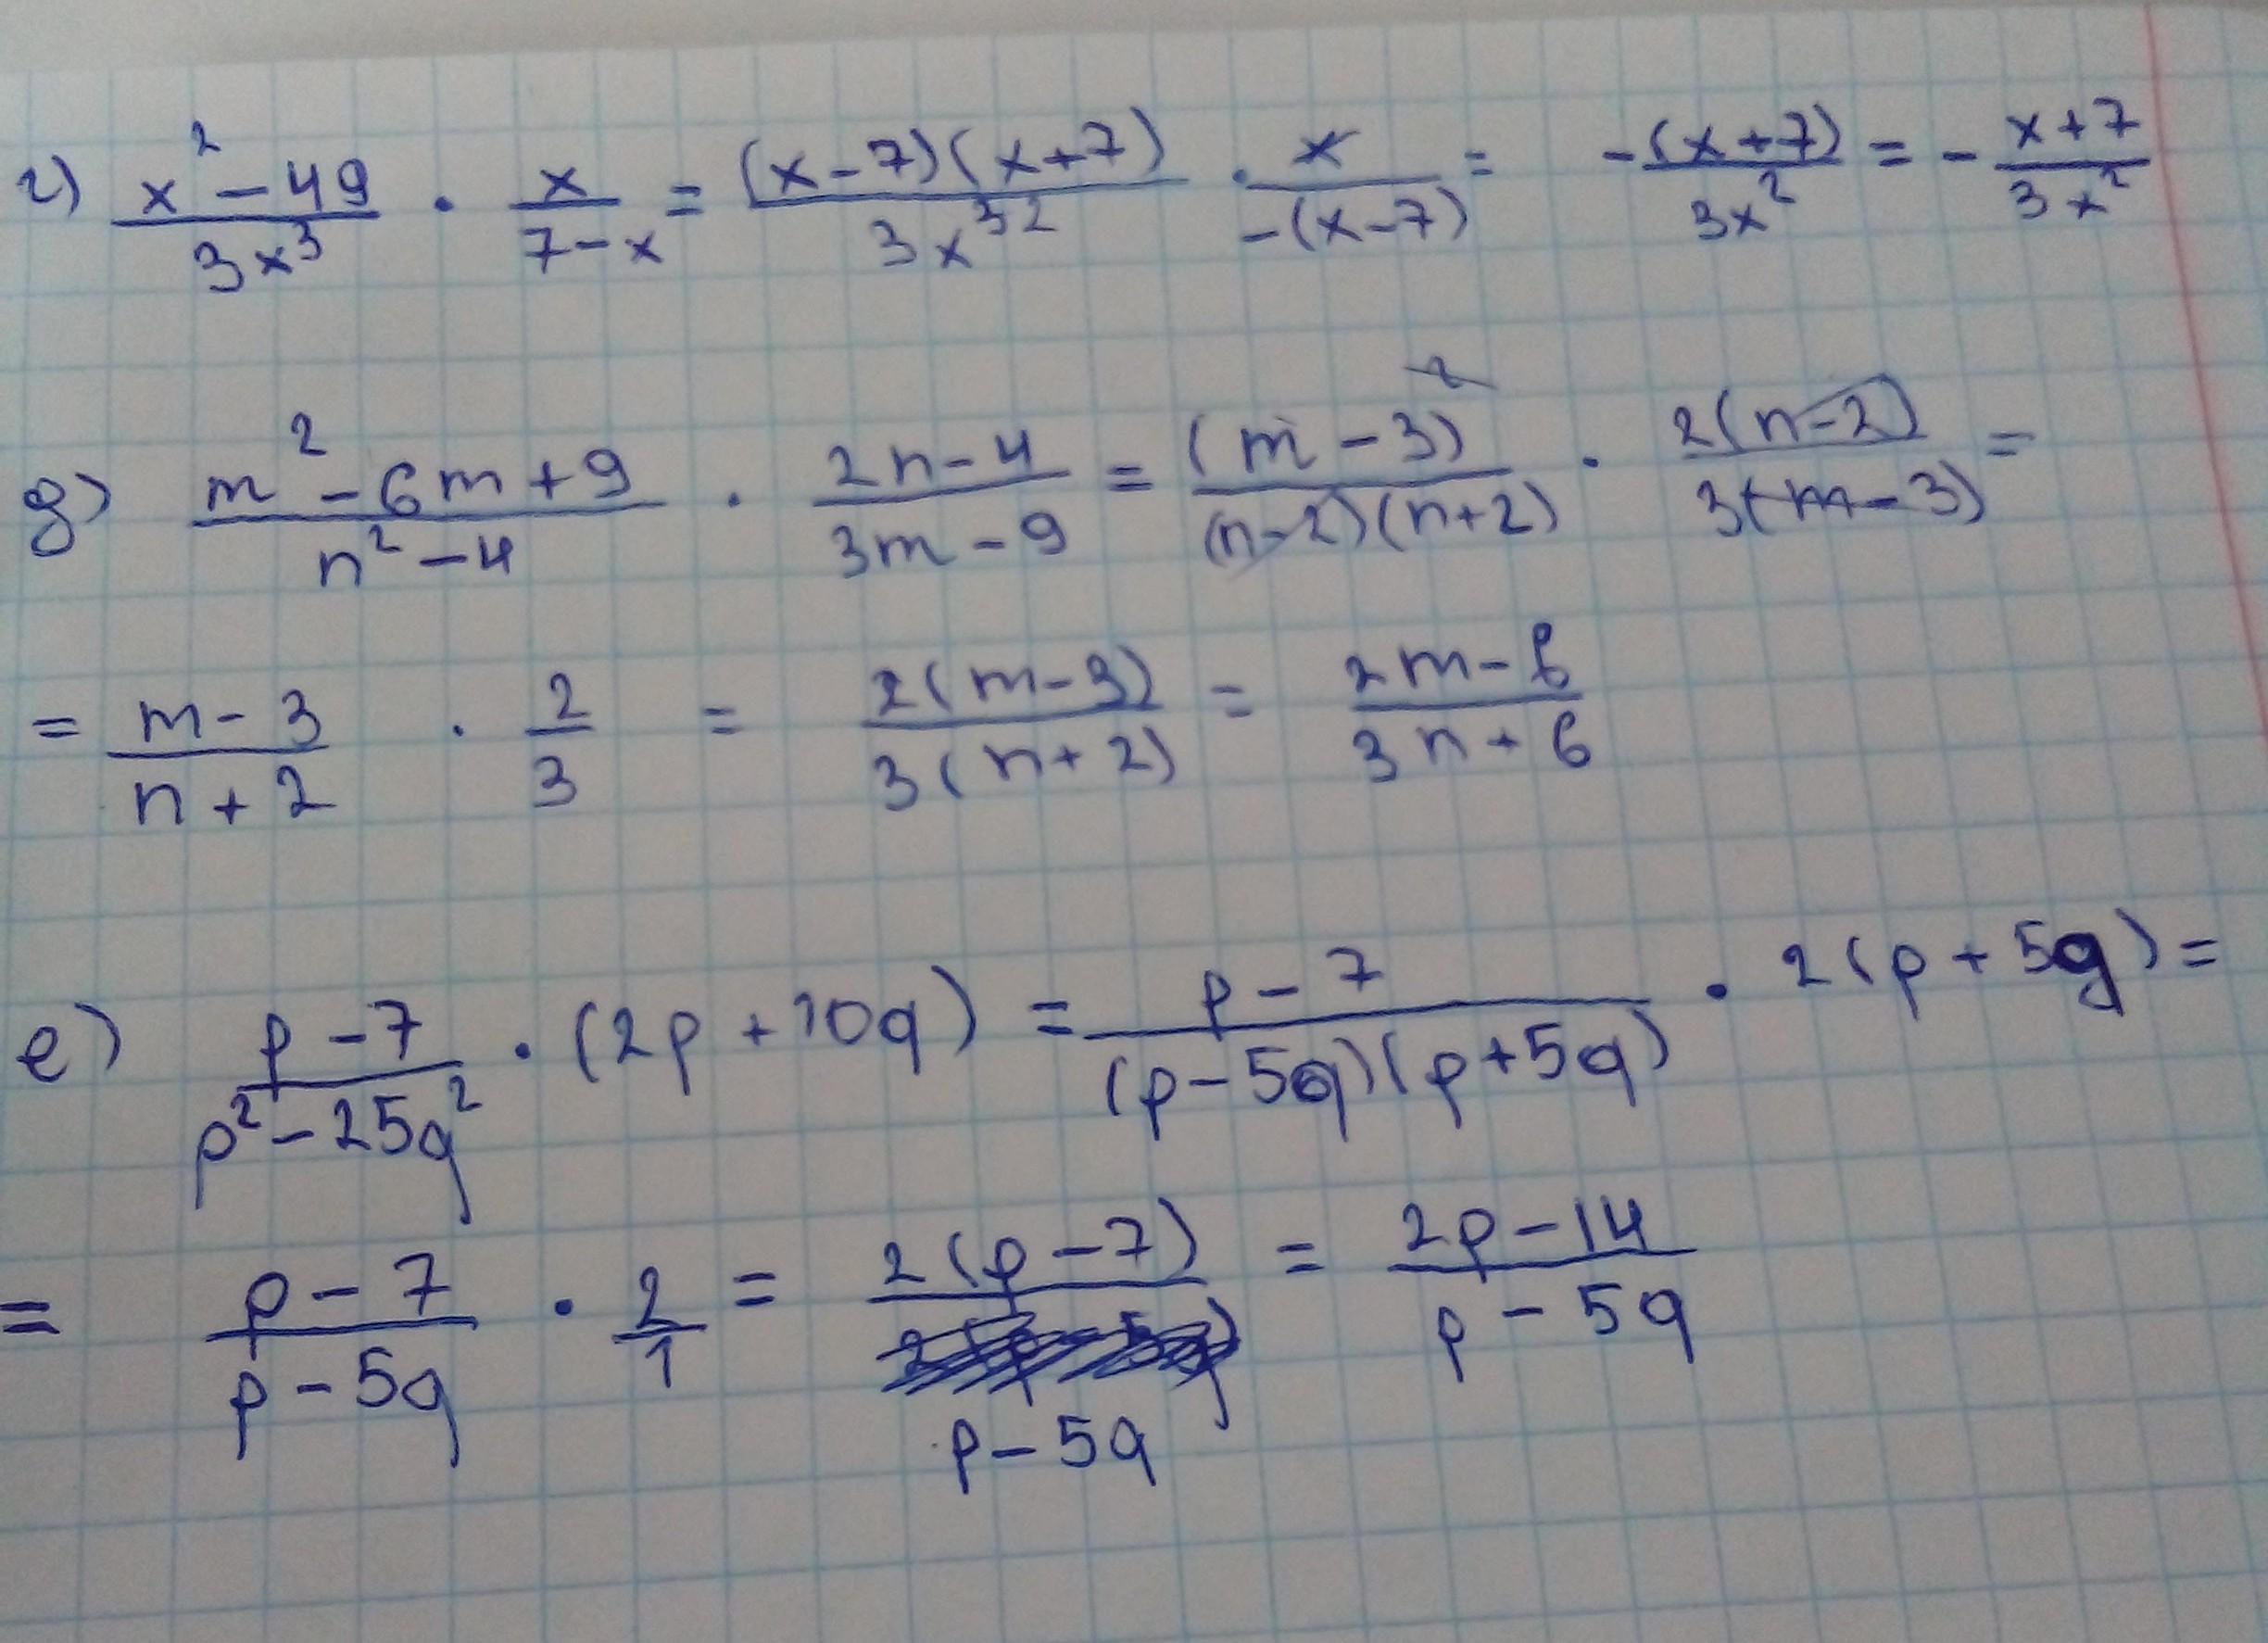 г) (x² - 49)/(3x³) · x/(7 - x) = ((x - 7)(x + 7))/(3x³²) · x/(-(x - 7)) = -(x + 7)/(3x²) = - (x + 7)/(3x²)
д) (m² - 6m + 9)/(n² - 4) · (2n - 4)/(3m - 9) = (m - 3)²/((n - 2)(n + 2)) · 2(n - 2)/(3(m - 3)) =
= (m - 3)/(n + 2) · 2/3 = 2(m - 3)/(3(n + 2)) = (2m - 6)/(3n + 6)
е) (p - 7)/(p² - 25q²) · (2p + 10q) = (p - 7)/((p - 5q)(p + 5q)) · 2(p + 5q) =
= (p - 7)/(p - 5q) · 2/1 = 2(p - 7)/(p - 5q) = (2p - 14)/(p - 5q)